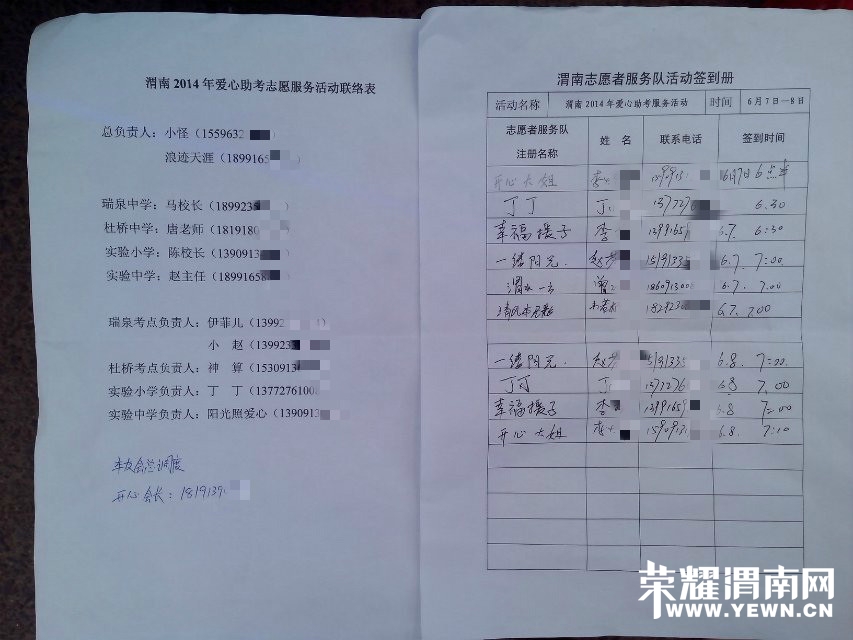 渭南 2014 年爱心助考志愿服务活动联络表
总负责人：小怪（1559632
浪迹天涯（1899165
瑞泉中学：马校长（1899235
杜桥中学：唐老师（1819180
实验小学：陈校长（1390913
实验中学：赵主任（1899165
瑞泉考点负责人：伊菲儿（13992
小 赵（139923
杜桥考点负责人：神 算（1530913
实验小学负责人：丁 丁（1377276100
实验中学负责人：阳光照爱心（1390913
车友会总调度
开心会长：1819139
渭南志愿者服务队活动签到册
活动名称 渭南 2014 年爱心助考服务活动 时间 6 月 7 日—8 日
志愿者服务队
注册名称 姓 名 联系电话 签到时间
开心大姐 6月7日6点半
丁丁 丁 137727 6.30
幸福援子 李 1399165 6.7. 6:30
一缕阳光. 赵 1519133 6.7. 7:00
渭水一 曾 1860913000 6.7. 7.00
1829230 6.7. 7.00
一缕阳光. 赵 1519133 6.8. 7:00.
丁丁 丁 1377276 6.8 7.00
幸福援子 李 1399165 6.8 7:00
开心大姐 李 1590913 6.8. 7:10
荣耀渭南网
WWW.YEWN.CN